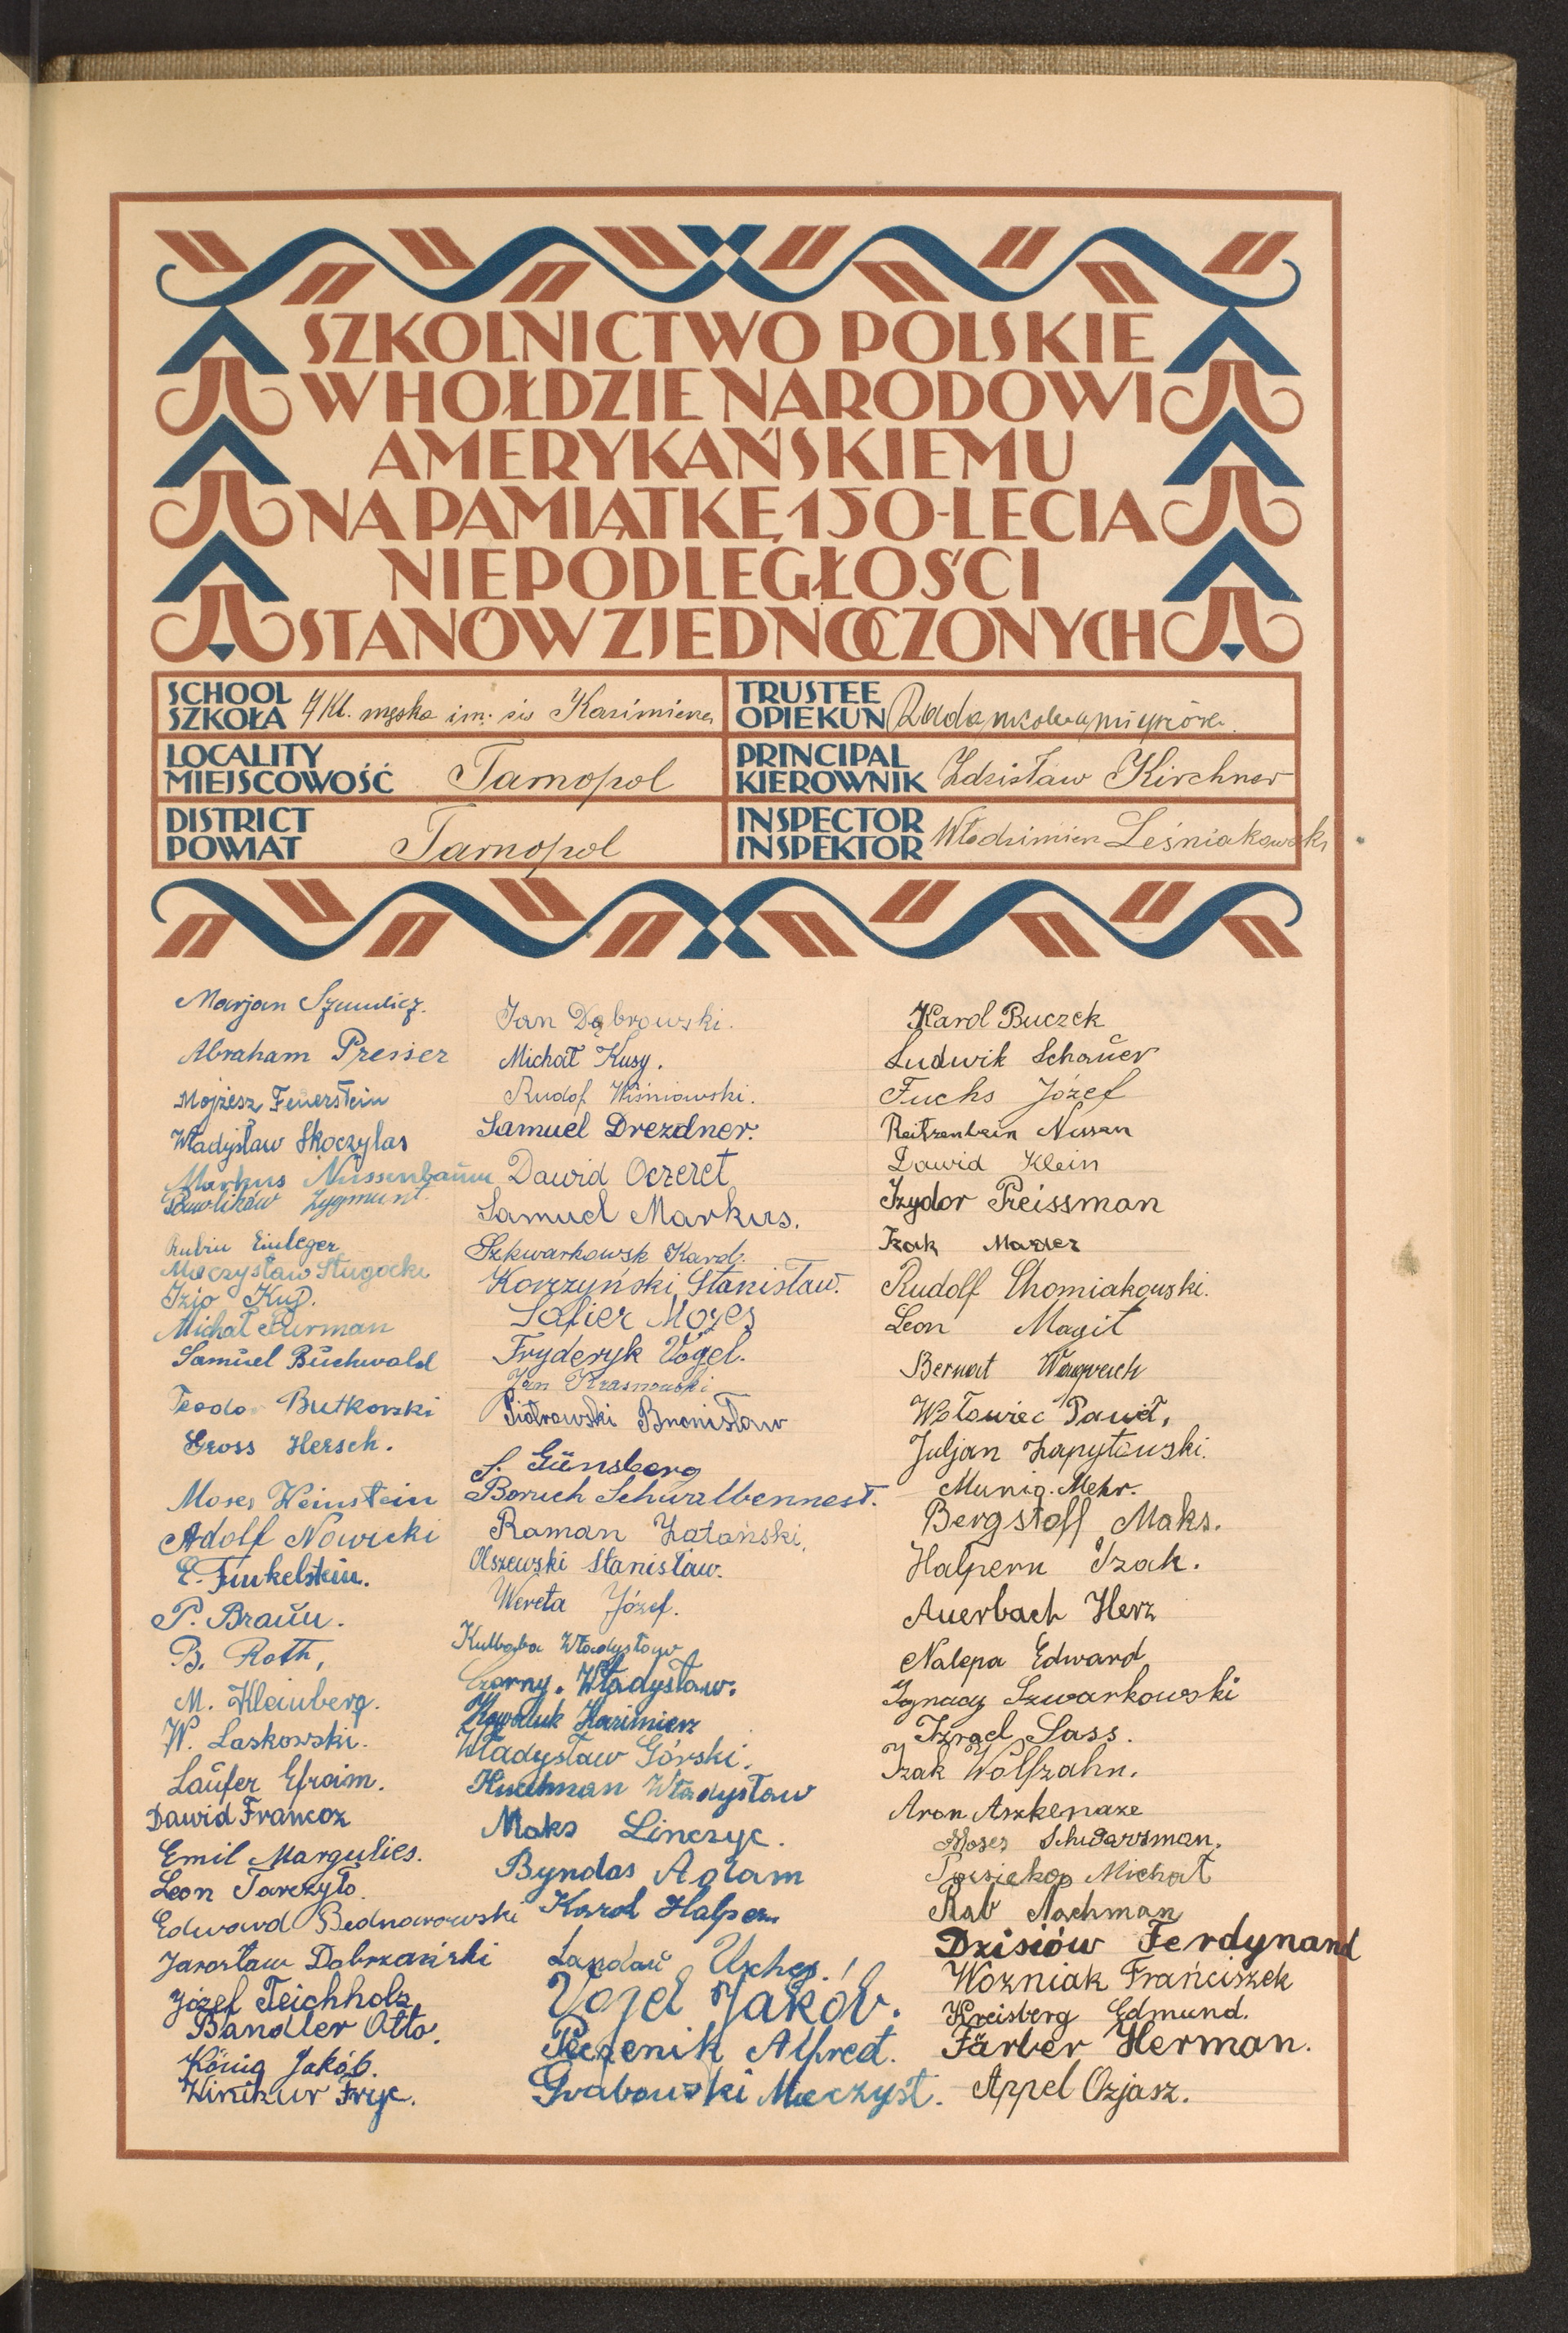 SZKOLNICTWO POLSKIE
W HOŁDZIE NARODOWI
AMERYKAŃSKIEMU
NA PAMIĄTKĘ 150-LECIA
NIEPODLEGŁOŚCI
STANÓW ZJEDNOCZONYCH
SCHOOL
SZKOŁA 4 Kl. męska im. św Kazimierza
TRUSTEE
OPIEKUN Rada szkolna
LOCALITY
MIEJSCOWOŚĆ Tarnopol
PRINCIPAL
KIEROWNIK Zdzisław Kirchner
DISTRICT
POWIAT Tarnopol
INSPECTOR
INSPEKTOR Włodzimierz Leśniakowski
Marjan
Abraham Presser
Mojżesz Feuerstein
Władysław Skoczylas
Markus Nussenbaum
Pawlików Zygmunt.
Rubin Einleger
Mieczysław Sługocki
Izio Kup.
Michał Furman
Samuel Buchwald
Teodo Butkowski
Gross Hersch.
Moses Weinstein
Adolf Nowicki
E. Finkelstein.
P. Braun.
B. Roth,
M. Kleinberg.
W. Laskowski.
Laufer Efraim.
Dawid Francoz
Emil Margulies.
Leon Tarczyło.
Edward Bednarowski
Jarosław Dobrzański
Józef Teichholz
Bandler Otto.
König Jakób.
Winikur Fryc.
Jan Dąbrowski.
Michał Kusy.
Rudof Wiśniowski.
Samuel Drezdner.
Dawid Oczeret
Samuel Markus.
Szkwarkowsk Karol.
Korzyński Stanisław.
Safier Mozes
Fryderyk Vogel.
Jan Krasnowski
Piotrowski Bronisław
S. Günsberg
Boruch Schwalbennest.
Roman Załoński,
Olszewski Stanisław.
Wereta Józef.
Kulbaba Władysław
Czarny. Władysław.
Kowaluk Kazimierz
Władysław Górski.
Kuchman Władysław
Maks Linczyc.
Byndas Adam
Karol Halpern
Landau Uscher!
Vogel Jakób.
Pieczenik Alfred.
Grabowski Mieczysł.
Karol Buczek
Ludwik Schauer
Fuchs Józef
Reitzenbein Nissan
Dawid Klein
Izydor Preissman
Izak Marder
Rudolf Chomiakowski.
Leon Magit
Bernat Wagreich
Wołowiec Paweł,
Juljan Łapytowski.
Munio. Mehr.
Bergstoff Maks.
Halpern Izak.
Auerbach Herz
Nalepa Edward
Ignacy Szwarkowski
Izrael Sass.
Izak Wolfzahn.
Aron Aszkenaze
Moses Schwarzman.
Michał
Rab Nachman
Dzisiów Ferdynand
Wozniak Frańciszek
Kreisberg Edmund.
Färber Herman.
Appel Ozjasz.